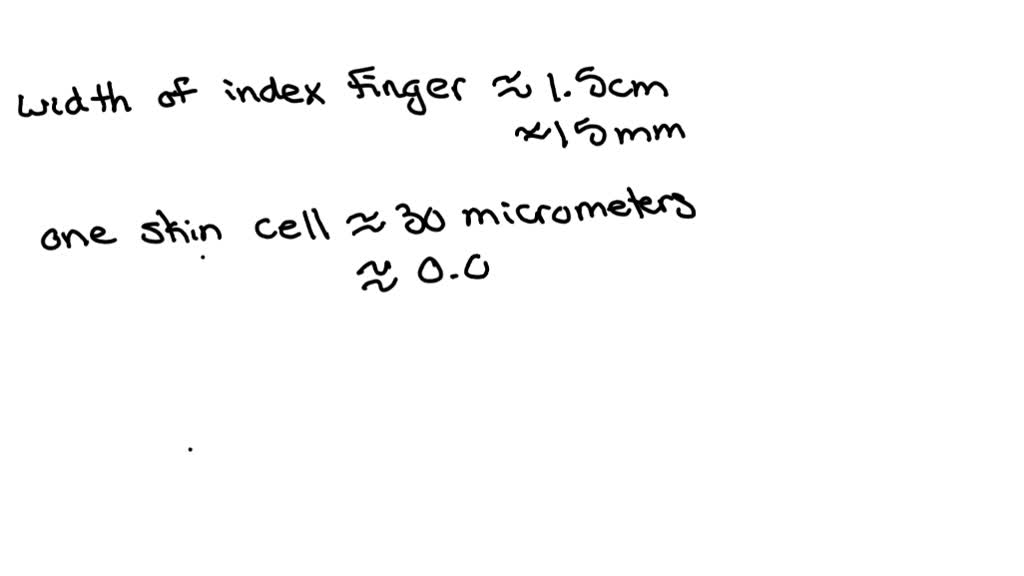 width of index finger ≈ 1.5cm
≈15mm
one skin cell ≈ 30 micrometers
≈ 0.0